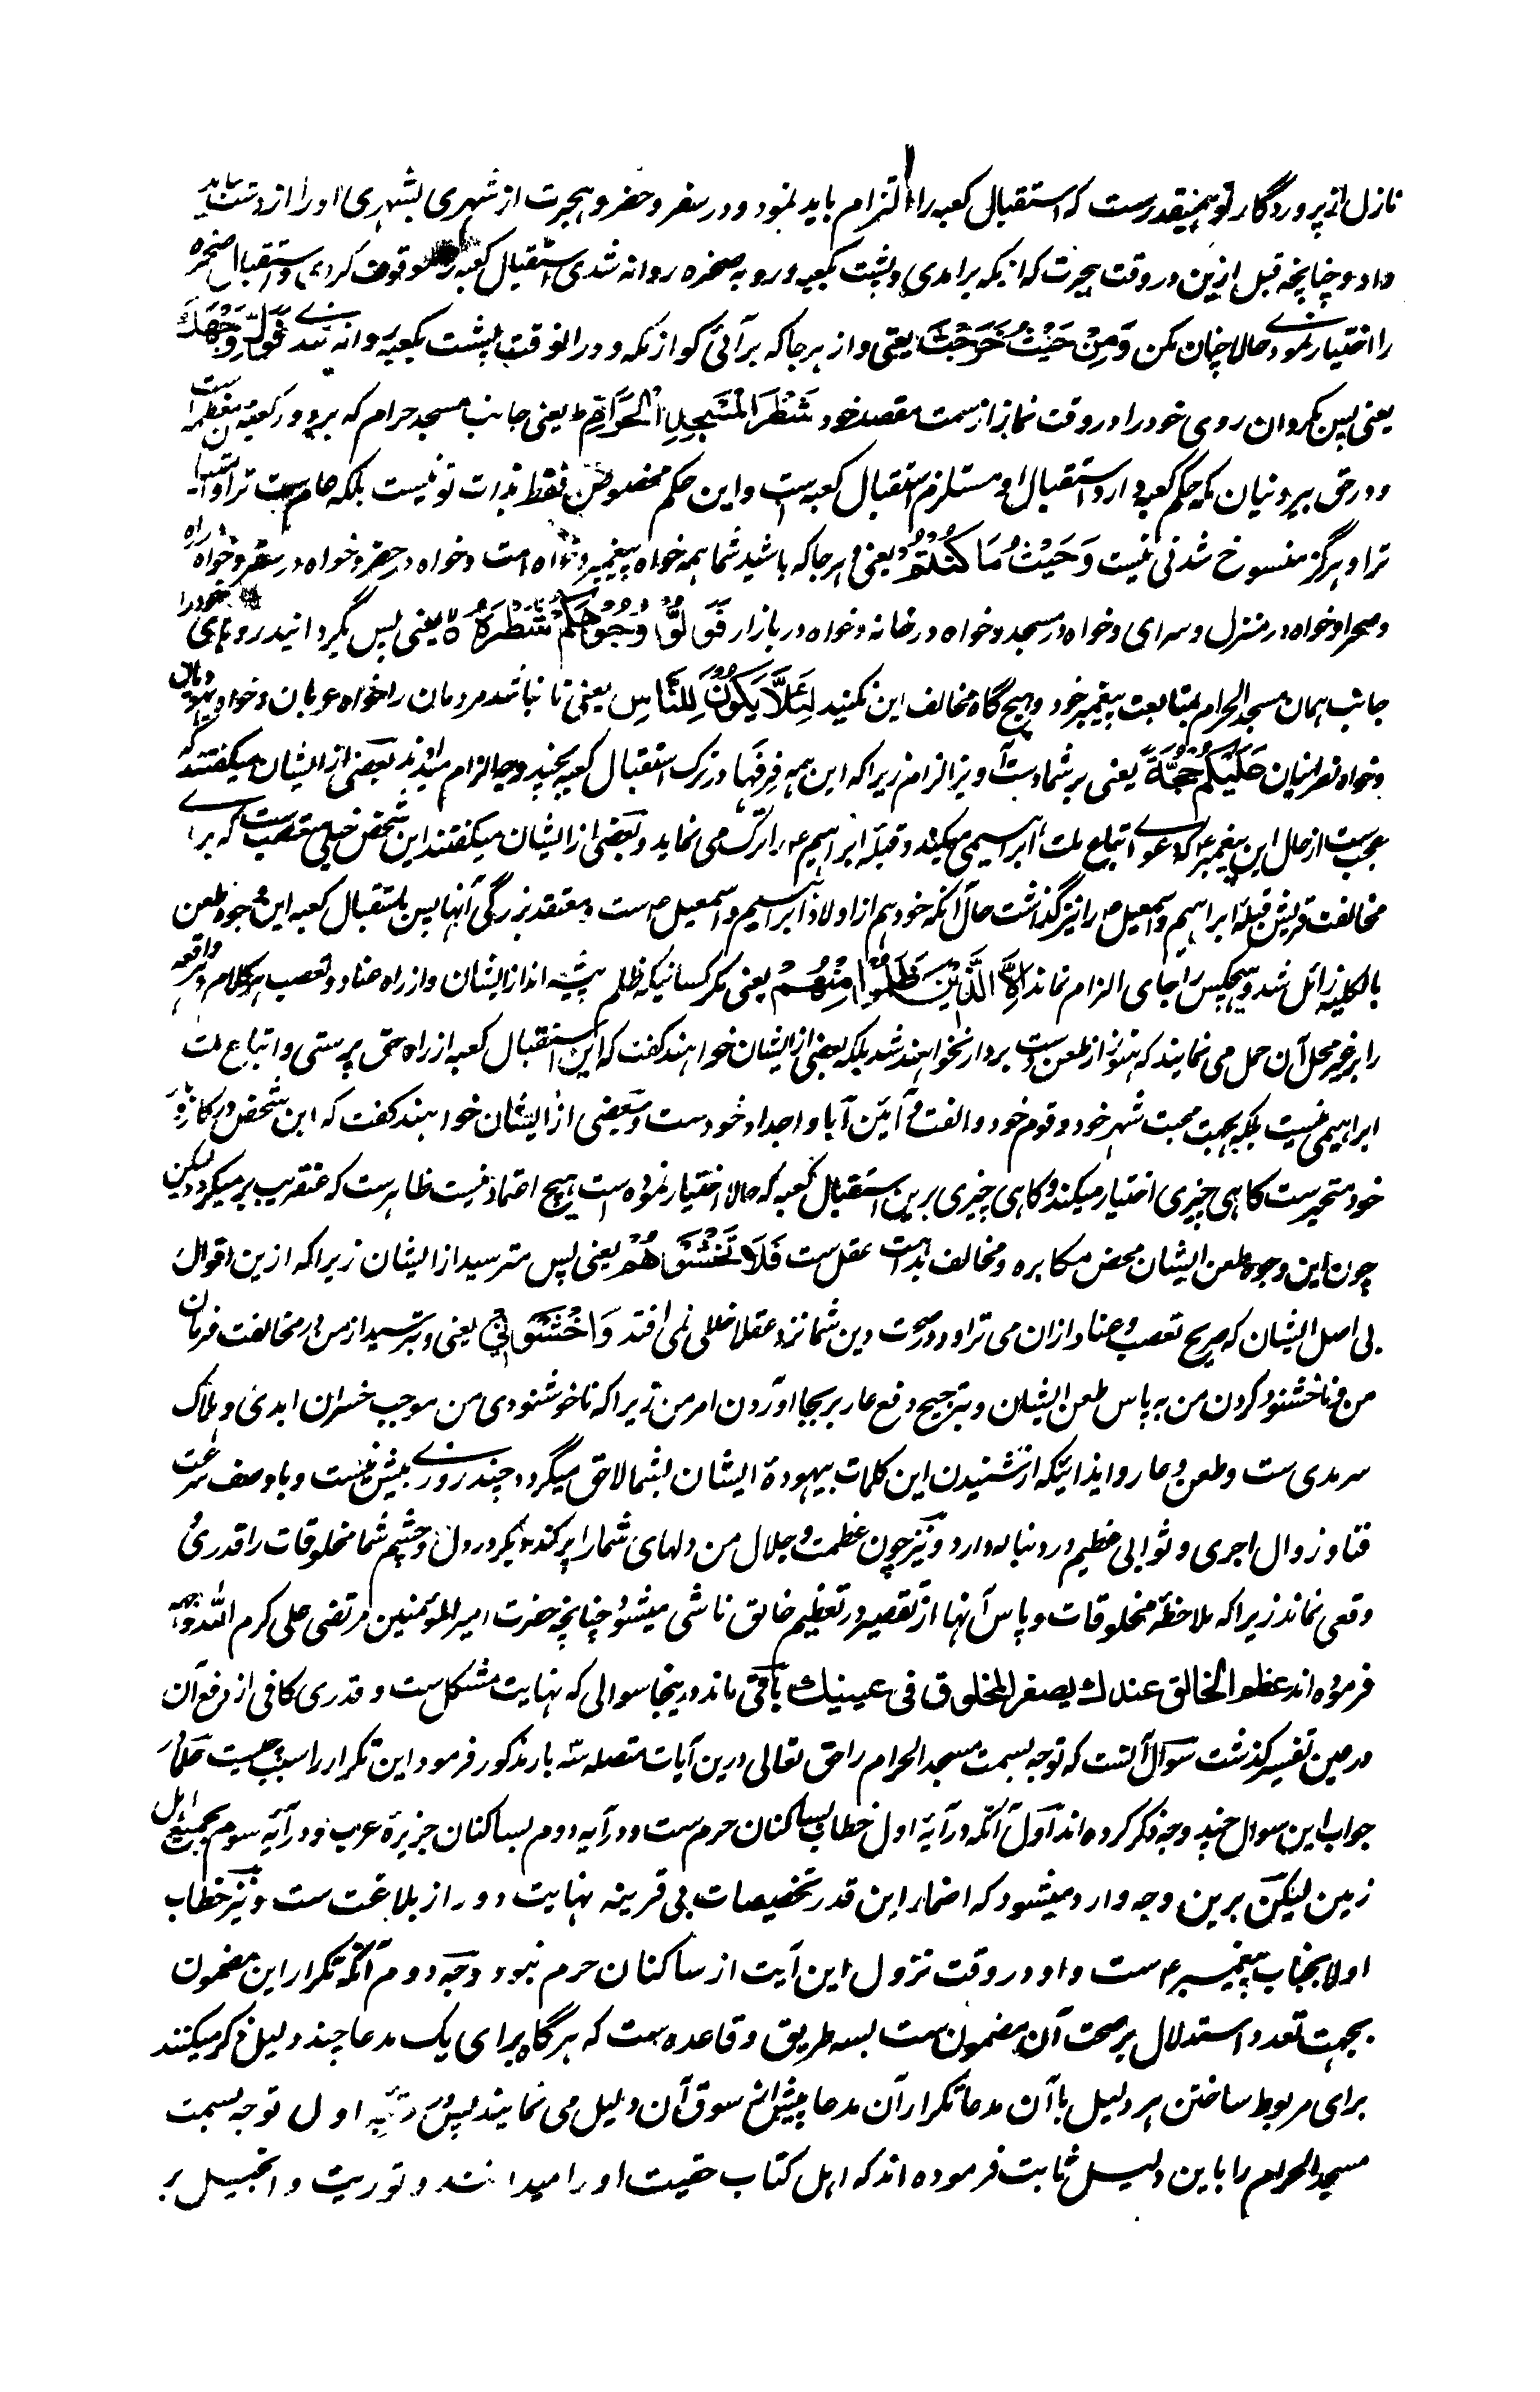 نازل از پروردگار تو همینقدرست که استقبال کعبه را التزام باید نمود و در سفر و حضر و هجرت از شهری بشهری او را از دست نباید
داد و چنانچه قبل ازین در وقت هجرت که از مکه برآمدی و پشت بکعبه و رو به صخره روانه شدی استقبال کعبه را موقوف کردی و استقبال صخره
را اختیار نمودی حالا چنان مکن وَمِنْ حَیْثُ خَرَجْتَ یعنی و از هر جا که برآئی گو از مکه و در انوقت پشت بکعبه روانه شدی فَوَلِّ وَجْهَكَ
یعنی پس بگردان روی خود را در وقت نماز از سمت مقصد خود شَطْرَ الْمَسْجِدِ الْحَرَامِ ط یعنی جانب مسجد حرام که برو در کعبه معظمه است
و در حق بیرونیان مکه حکم کعبه دارد و استقبال او مستلزم استقبال کعبه است و این حکم مخصوص فقط بذات تو نیست بلکه عام ست ترا و امتیان
ترا و هرگز منسوخ شدنی نیست وَحَیْثُ مَا کُنْتُمْ یعنی و هر جا که باشید شما همه خواه پیغمبر و خواه امت و خواه در حضر و خواه در سفر و خواه در راه
و صحرا و خواه در منزل و سرای و خواه در مسجد و خواه در خانه و خواه در بازار فَوَلُّوْا وُجُوْهَکُمْ شَطْرَهٗ لا یعنی پس بگردانید روهای خود را
جانب همان مسجد الحرام بمتابعت پیغمبر خود و هیچ گاه مخالف این نکنید لِئَلَّا یَکُوْنَ لِلنَّاسِ یعنی تا نباشد مردمان را خواه عربان و خواه یهودیان
و خواه نصرانیان عَلَیْکُمْ حُجَّةٌ یعنی بر شما دست آویز الزام زیرا که این همه فرقها در ترک استقبال کعبه بچند وجه الزام میدادند بعضی از ایشان میگفتند که
عجب ست از حال این پیغمبر که دعوای اتباع ملت ابراهیمی میکند و قبله ابراهیم ع را ترک می نماید و بعضی از ایشان میگفتند این شخص خیلی متعصب ست که برای
مخالفت قریش قبله ابراهیم و اسمعیل ع را نیز گذاشت حال آنکه خود هم از اولاد ابراهیم و اسمعیل ع است و معتقد بزرگی آنها پس باستقبال کعبه این وجوه طعن
بالکلیه زائل شد و هیچکس را جای الزام نماند اِلَّا الَّذِیْنَ ظَلَمُوْا مِنْهُمْ یعنی مگر کسانیکه ظلم پیشه اند از ایشان و از راه عناد و تعصب هر کلام و هر واقعه
را بر غیر محل آن حمل می نمایند که هنوز از طعن دست بردار نخواهند شد بلکه بعضی از ایشان خواهند گفت که این استقبال کعبه از راه حق پرستی و اتباع ملت
ابراهیمی نیست بلکه بجهت محبت شهر خود و قوم خود و الفت آئین آبا و اجداد خودست و بعضی از ایشان خواهند گفت که این شخص در کار
خود متحیرست گاهی چیزی اختیار میکند و گاهی چیزی برین استقبال کعبه که حالا اختیار نموده است هیچ اعتماد نیست ظاهرست که عنقریب برمیگردد لیکن
چون این وجوه طعن ایشان محض مکابره و مخالف بداهت عقل ست فَلَا تَخْشَوْهُمْ یعنی پس مترسید از ایشان زیرا که ازین اقوال
بی اصل ایشان که صریح تعصب و عناد ازان می تراود در صحت دین شما نزد عقلا خللی نمی افتد وَاخْشَوْنِیْ یعنی و بترسید از من در مخالفت فرمان
من و ناخشنود کردن من به پاس طعن ایشان و بترجیح دفع عار بر بجا آوردن امر من زیرا که ناخوشنودی من موجب خسران ابدی و هلاک
سرمدی ست و طعن و عار و ایذائیکه از شنیدن این کلمات بیهوده ایشان بشما لاحق میگردد چند روزی بیش نیست و با وصف سرعت
فنا و زوال اجری و ثوابی عظیم در دنباله دارد و نیز چون عظمت و جلال من دلهای شما را پر کند دیگر در دل و چشم شما مخلوقات را قدری
وقعی نماند زیرا که ملاحظه مخلوقات و پاس آنها از تقصیر در تعظیم خالق ناشی میشود چنانچه حضرت امیر المؤمنین مرتضی علی کرم الله وجهه
فرموده اند عظم الخالق عندك یصغر المخلوق فی عینیك باقی ماند درینجا سوالی که نهایت مشکل ست و قدری کافی از رفع آن
در عین تفسیر گذشت سوال آنست که توجه بسمت مسجد الحرام را حق تعالی درین آیات متصله سه بار مذکور فرمود این تکرار را سبب چیست علما در
جواب این سوال چند وجه ذکر کرده اند اول آنکه در آیة اول خطاب بساکنان حرم ست و در آیه دوم بساکنان جزیرة عرب و در آیه سوم بجمیع اهل
زمین لیکن برین وجه وارد میشود که اضمار این قدر تخصیصات بی قرینه نهایت دور از بلاغت ست و نیز خطاب
اولا بجناب پیغمبر ع ست و او در وقت نزول این آیت از ساکنان حرم نبود وجه دوم آنکه تکرار این مضمون
بجهت تعدد استدلال بر صحت آن مضمون ست بسه طریق و قاعده است که هر گاه برای یک مدعا چند دلیل ذکر میکنند
برای مربوط ساختن هر دلیل با آن مدعا تکرار آن مدعا پیش از سوق آن دلیل می نمایند پس در آیه اول توجه بسمت
مسجد الحرام را باین دلیل ثابت فرموده اند که اهل کتاب حقیت او را میدانند و توریت و انجیل بر